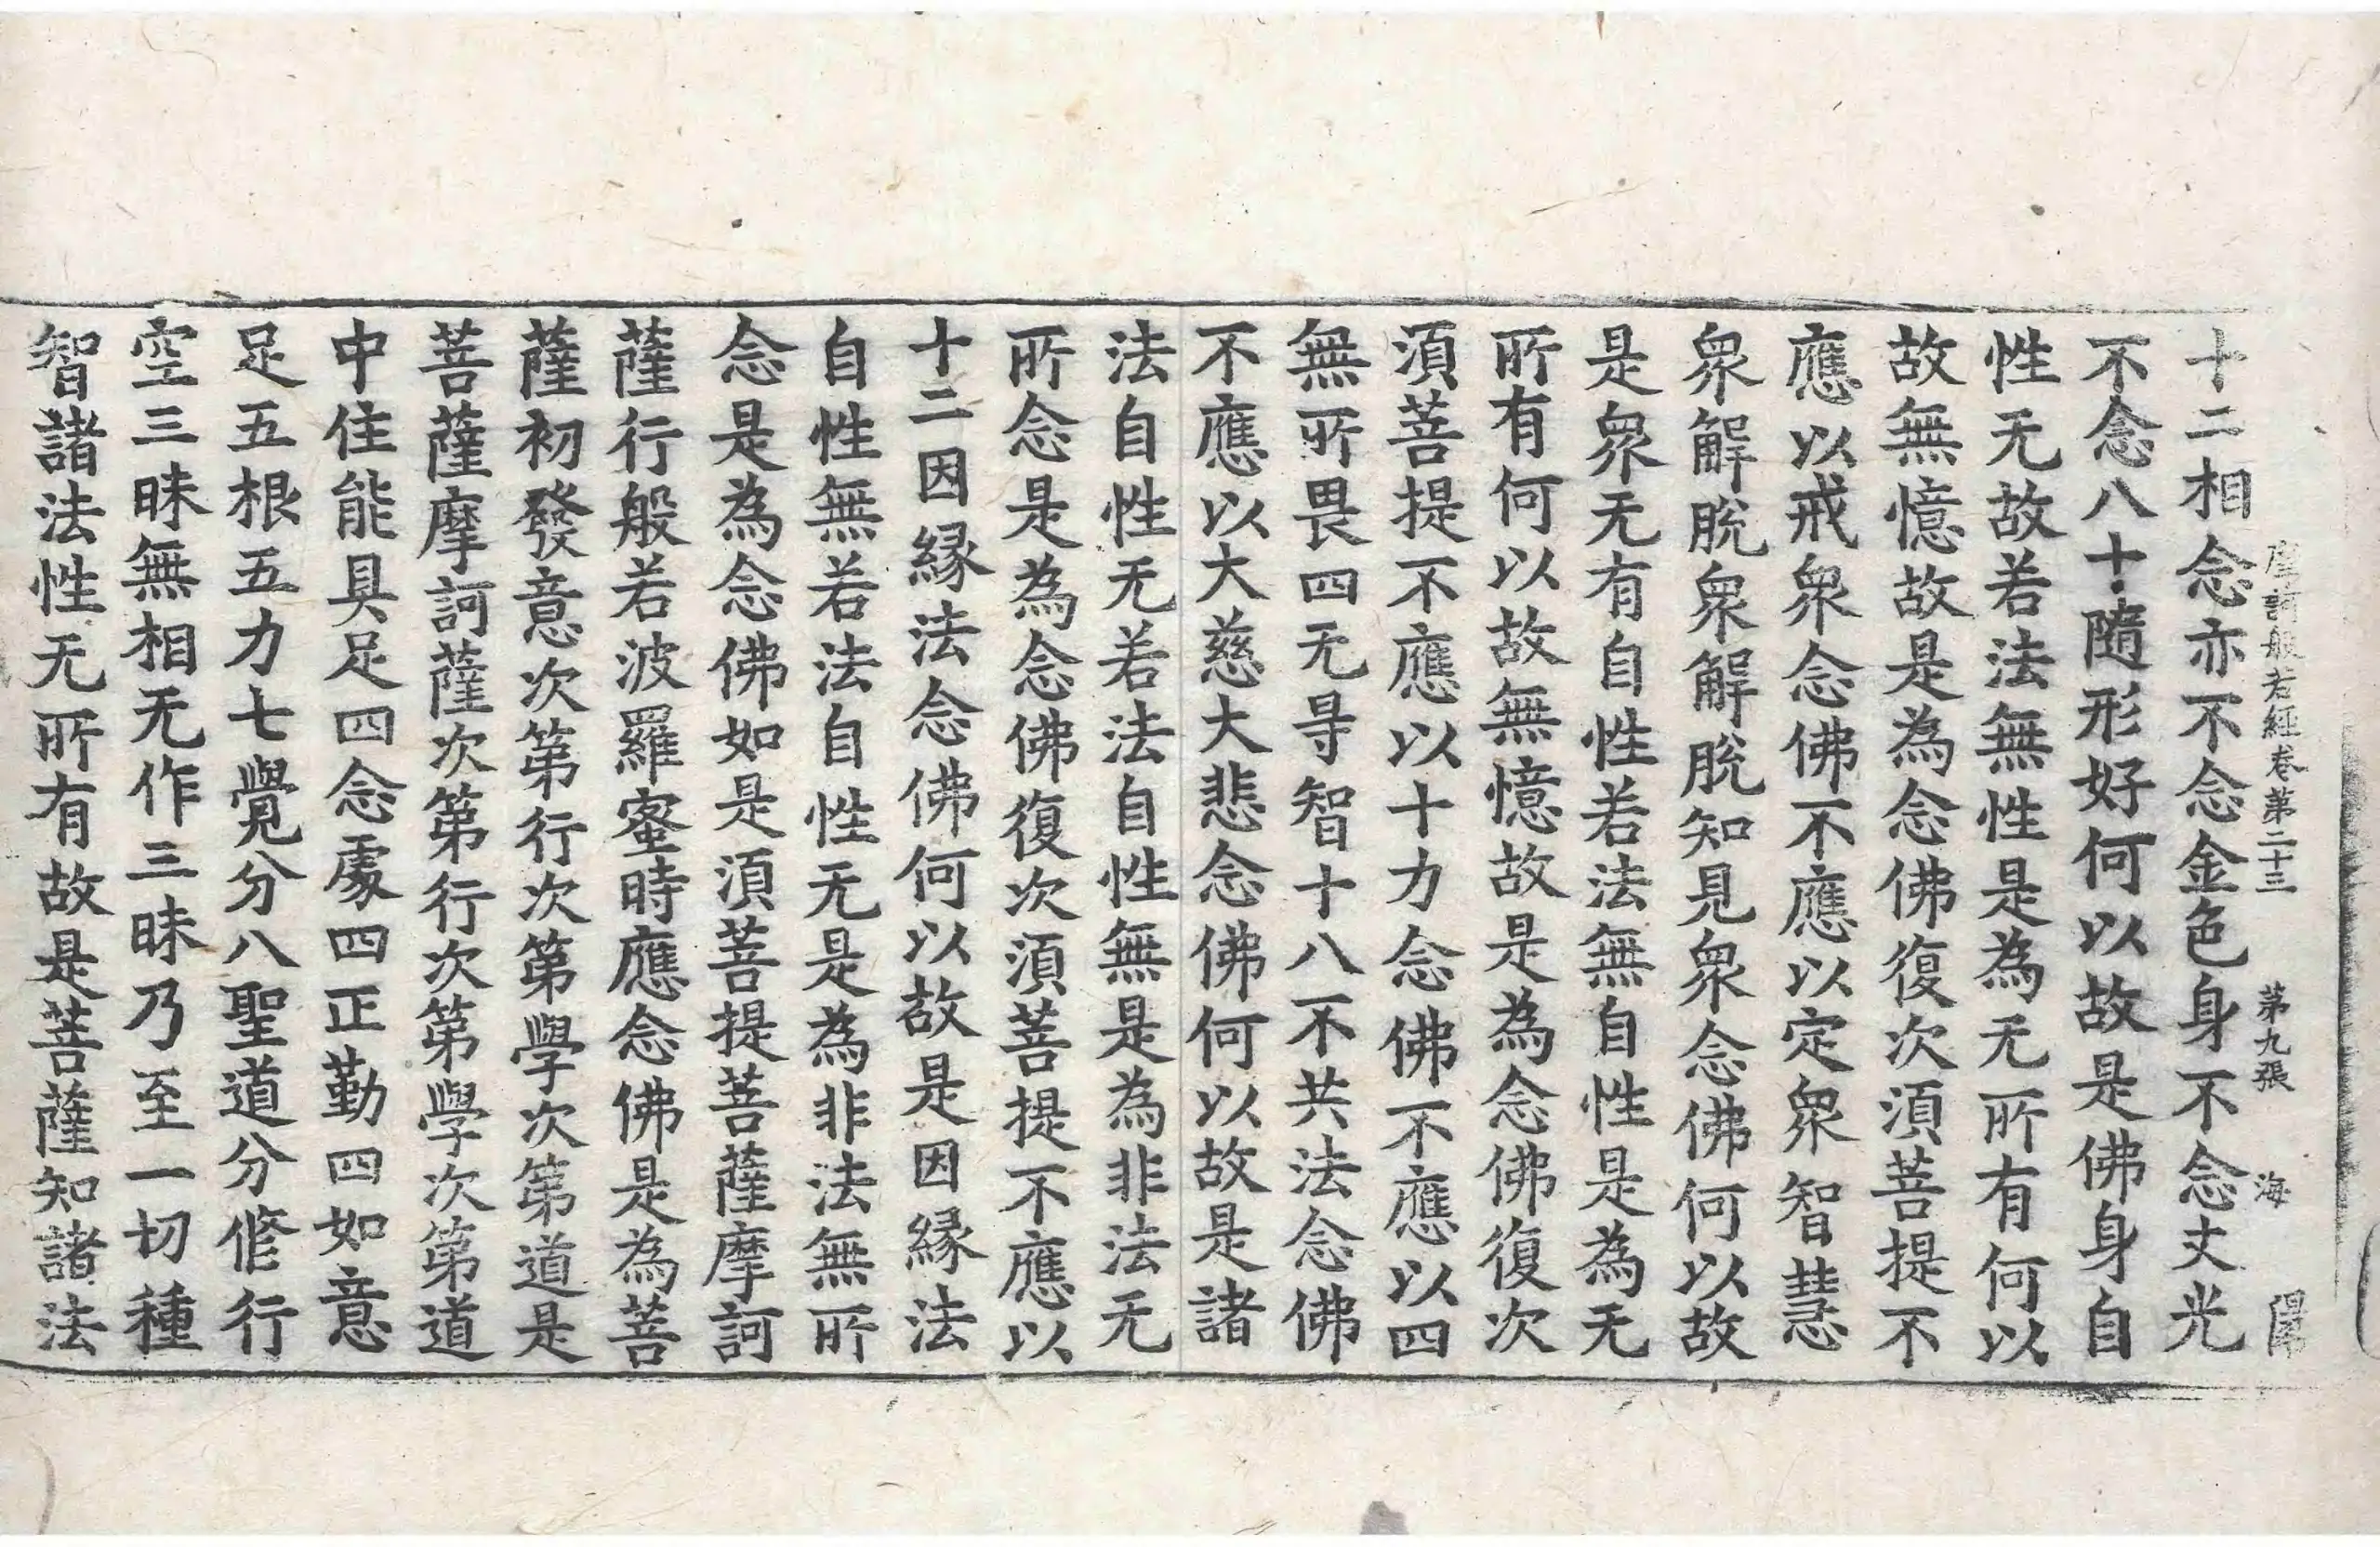 摩訶般若經卷第二十三 第九張 海
十二相念亦不念金色身不念丈光
不念八十隨形好何以故是佛身自
性无故若法無性是為无所有何以
故無憶故是為念佛復次須菩提不
應以戒衆念佛不應以定衆智慧
衆解脫衆解脫知見衆念佛何以故
是衆无有自性若法無自性是為无
所有何以故無憶故是為念佛復次
須菩提不應以十力念佛不應以四
無所畏四无㝵智十八不共法念佛
不應以大慈大悲念佛何以故是諸
法自性无若法自性無是為非法无
所念是為念佛復次須菩提不應以
十二因緣法念佛何以故是因緣法
自性無若法自性无是為非法無所
念是為念佛如是須菩提菩薩摩訶
薩行般若波羅蜜時應念佛是為菩
薩初發意次第行次第學次第道是
菩薩摩訶薩次第行次第學次第道
中住能具足四念處四正勤四如意
足五根五力七覺分八聖道分修行
空三昧無相无作三昧乃至一切種
智諸法性无所有故是菩薩知諸法